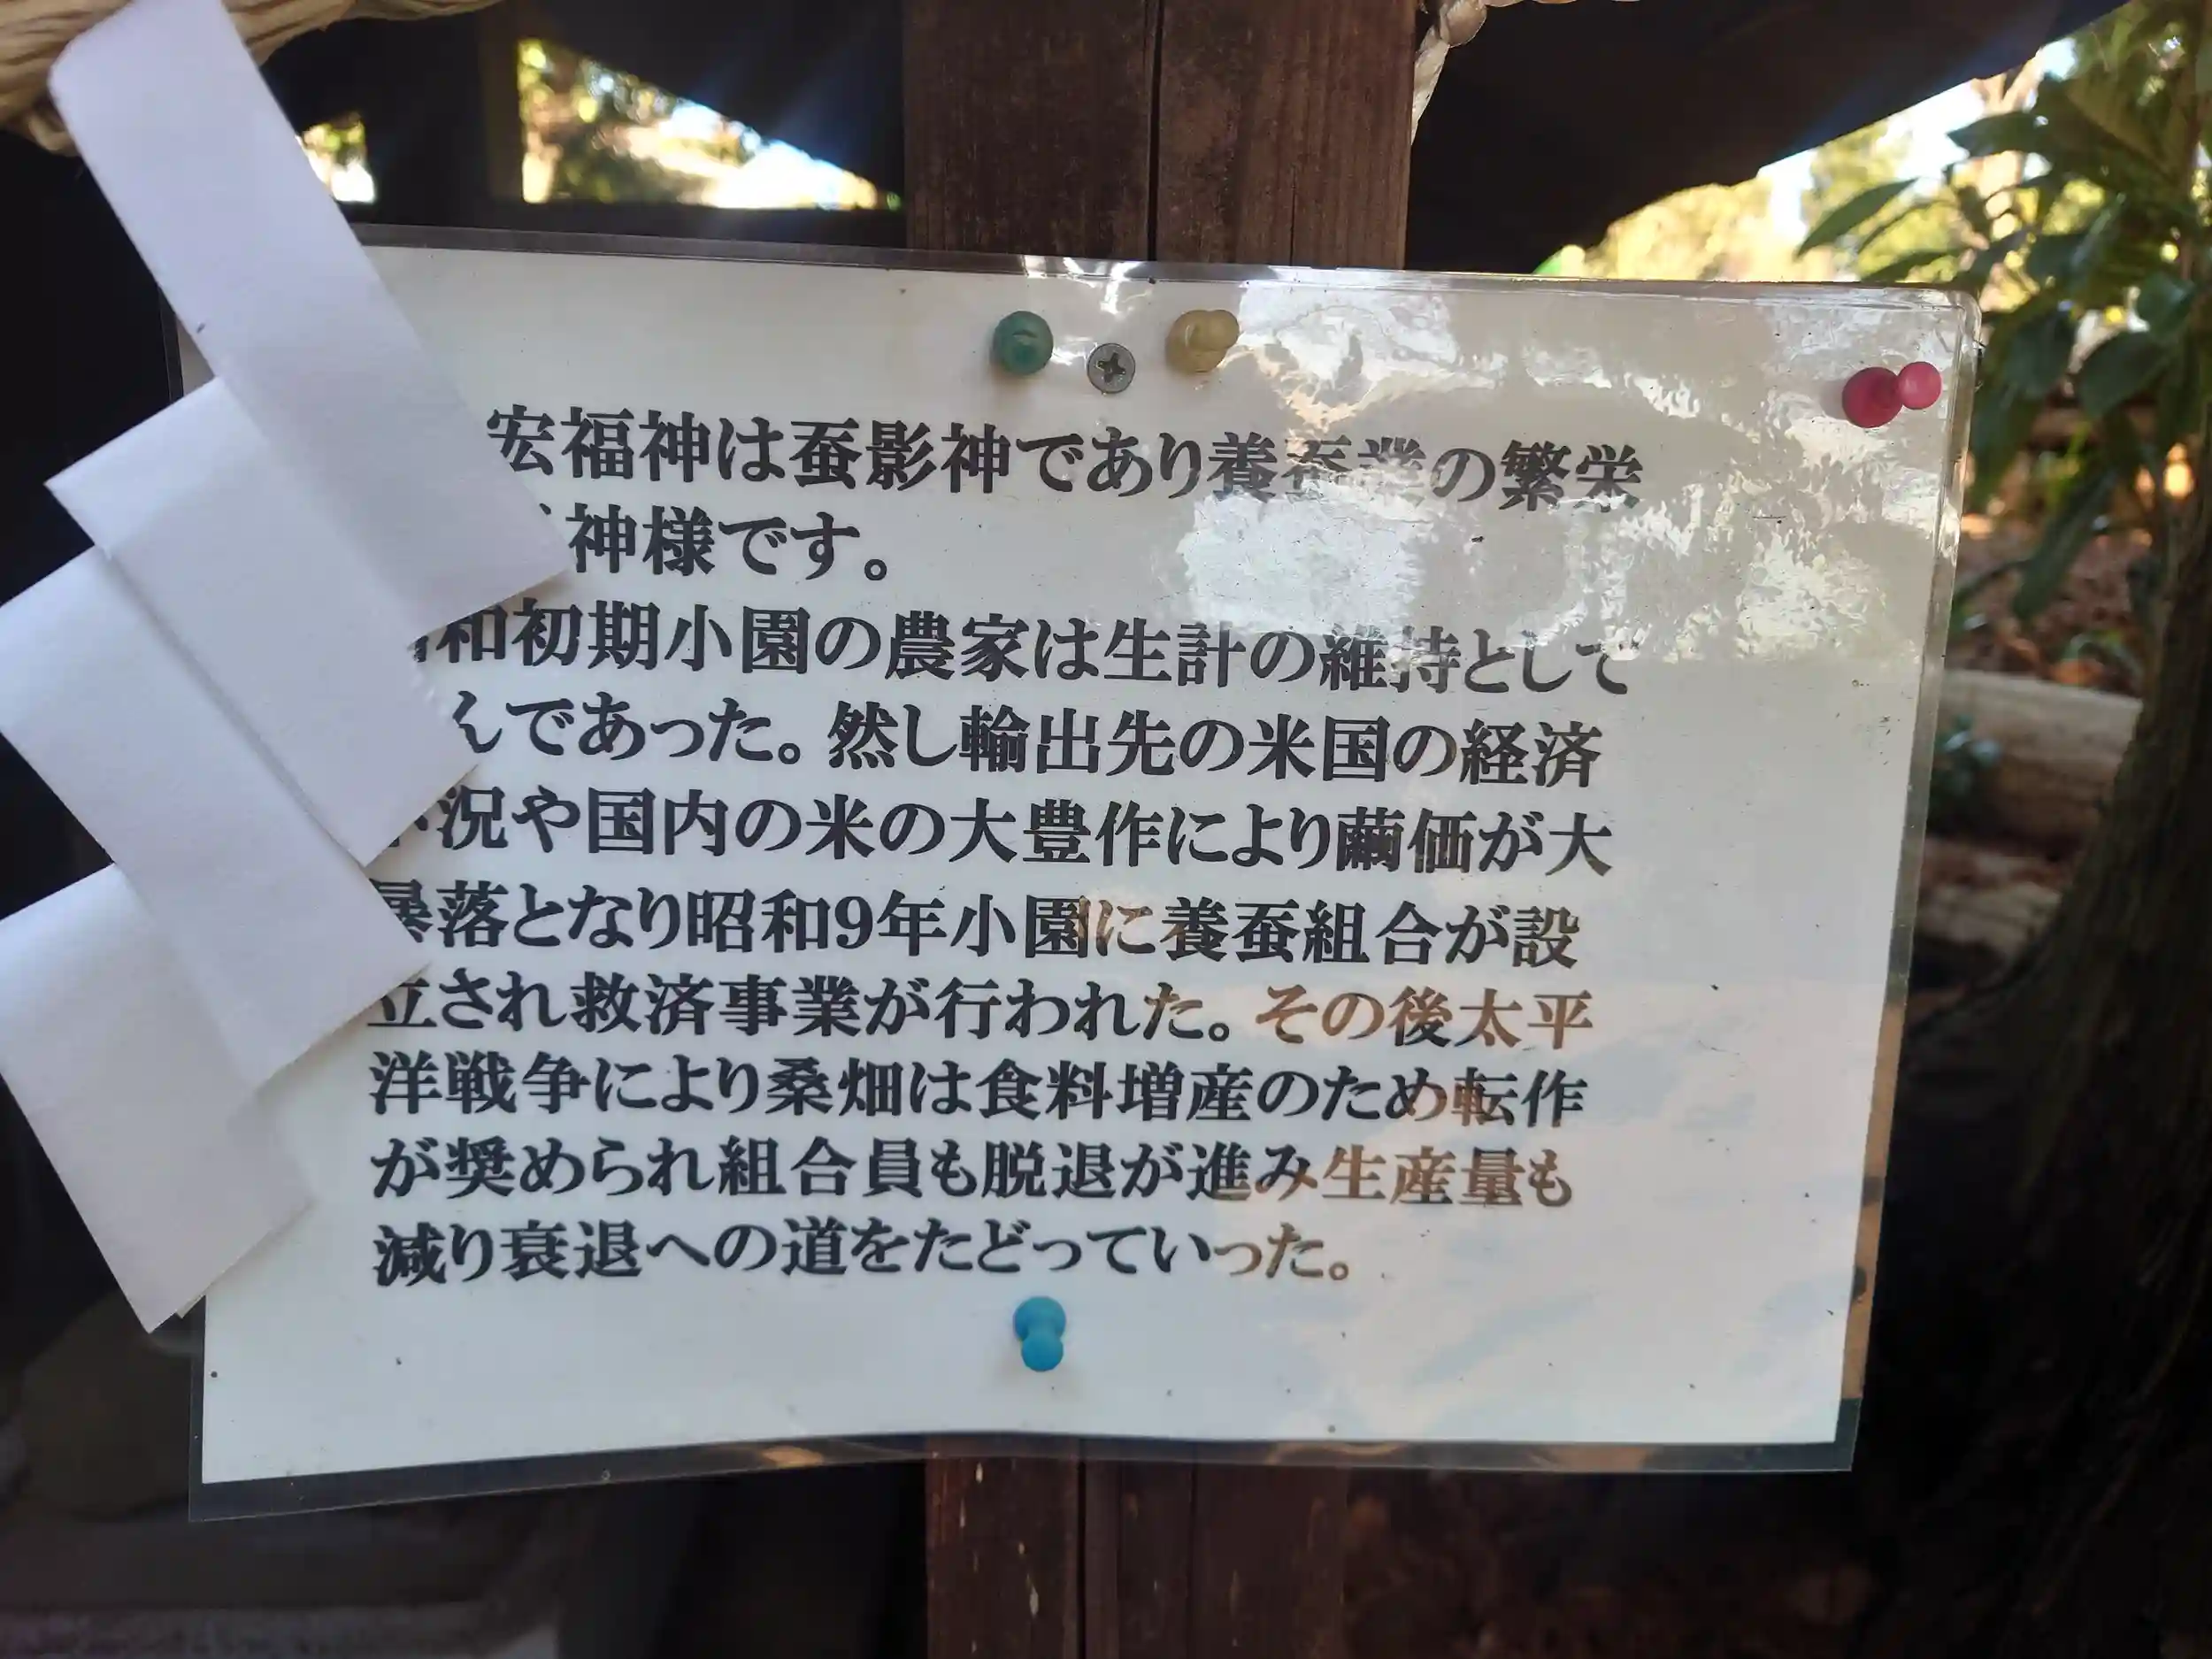 宏福神は蚕影神であり養蚕業の繁栄
神様です。
和初期小園の農家は生計の維持として
んであった。然し輸出先の米国の経済
況や国内の米の大豊作により繭価が大
暴落となり昭和9年小園に養蚕組合が設
立され救済事業が行われた。その後太平
洋戦争により桑畑は食料増産のため転作
が奨められ組合員も脱退が進み生産量も
減り衰退への道をたどっていった。